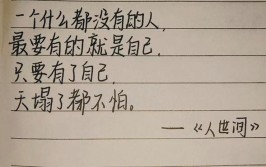 一个什么都没有的人,
最要有的就是自己,
只要有了自己,
天塌了都不怕。
—《人世间》